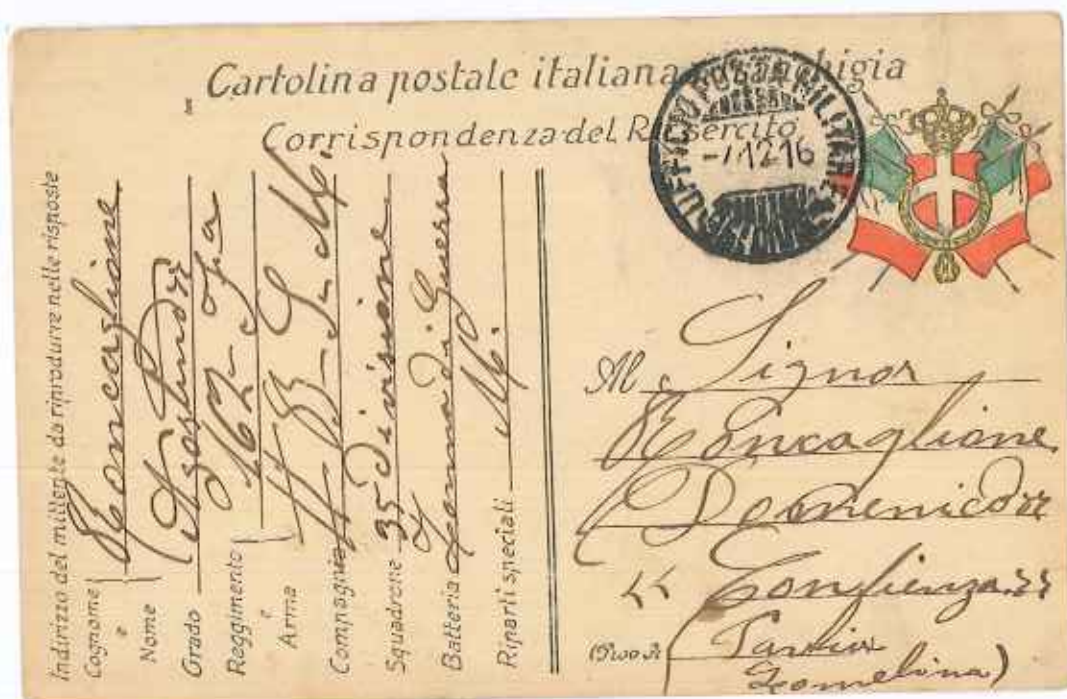 Cartolina postale italiana in franchigia
Corrispondenza del R. esercito
UFFICIO POSTA MILITARE
-7.12.16
Indirizzo del mittente da riprodurre nelle risposte
Cognome Roncaglione
e
Nome Agostino
Grado
Reggimento 162
e
Arma
Compagnia
Squadrone 35 Divisione
Batteria Zonna di Guerra
Riparti speciali
Al Signor
Roncaglione
Domenico
Confienza
(Prov. Pavia
Lomelina)